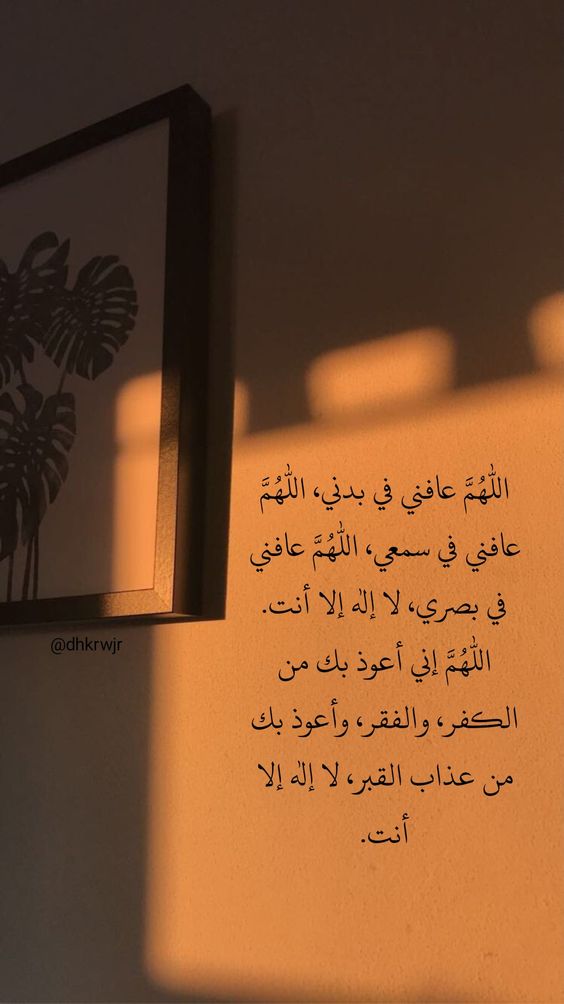 اللّٰهُمَّ عافني في بدني، اللّٰهُمَّ
عافني في سمعي، اللّٰهُمَّ عافني
في بصري، لا إلٰه إلا أنت.
اللّٰهُمَّ إني أعوذ بك من
الكفر، والفقر، وأعوذ بك
من عذاب القبر، لا إلٰه إلا
أنت.
@dhkrwjr